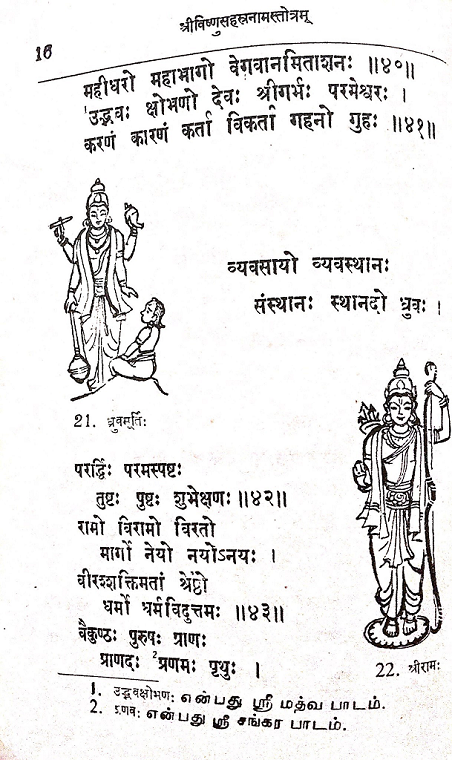 श्रीविष्णुसहस्रनामस्तोत्रम्
16
महीधरो महाभागो वेगवानमिताशनः ॥४०॥
¹उद्भवः क्षोभणो देवः श्रीगर्भः परमेश्वरः ।
करणं कारणं कर्ता विकर्ता गहनो गुहः ॥४१॥
व्यवसायो व्यवस्थानः
संस्थानः स्थानदो ध्रुवः ।
21. ध्रुवमूर्तिः
परर्द्धिः परमस्पष्टः
तुष्टः पुष्टः शुभेक्षणः ॥४२॥
रामो विरामो विरतो
मार्गो नेयो नयोऽनयः ।
वीरश्शक्तिमतां श्रेष्ठो
धर्मो धर्मविदुत्तमः ॥४३॥
वैकुण्ठः पुरुषः प्राणः
प्राणदः ²प्रणमः पृथुः ।
22. श्रीरामः
1. उद्भवक्षोभणः என்பது ஸ்ரீ மத்வ பாடம்.
2. प्रणवः என்பது ஸ்ரீ சங்கர பாடம்.